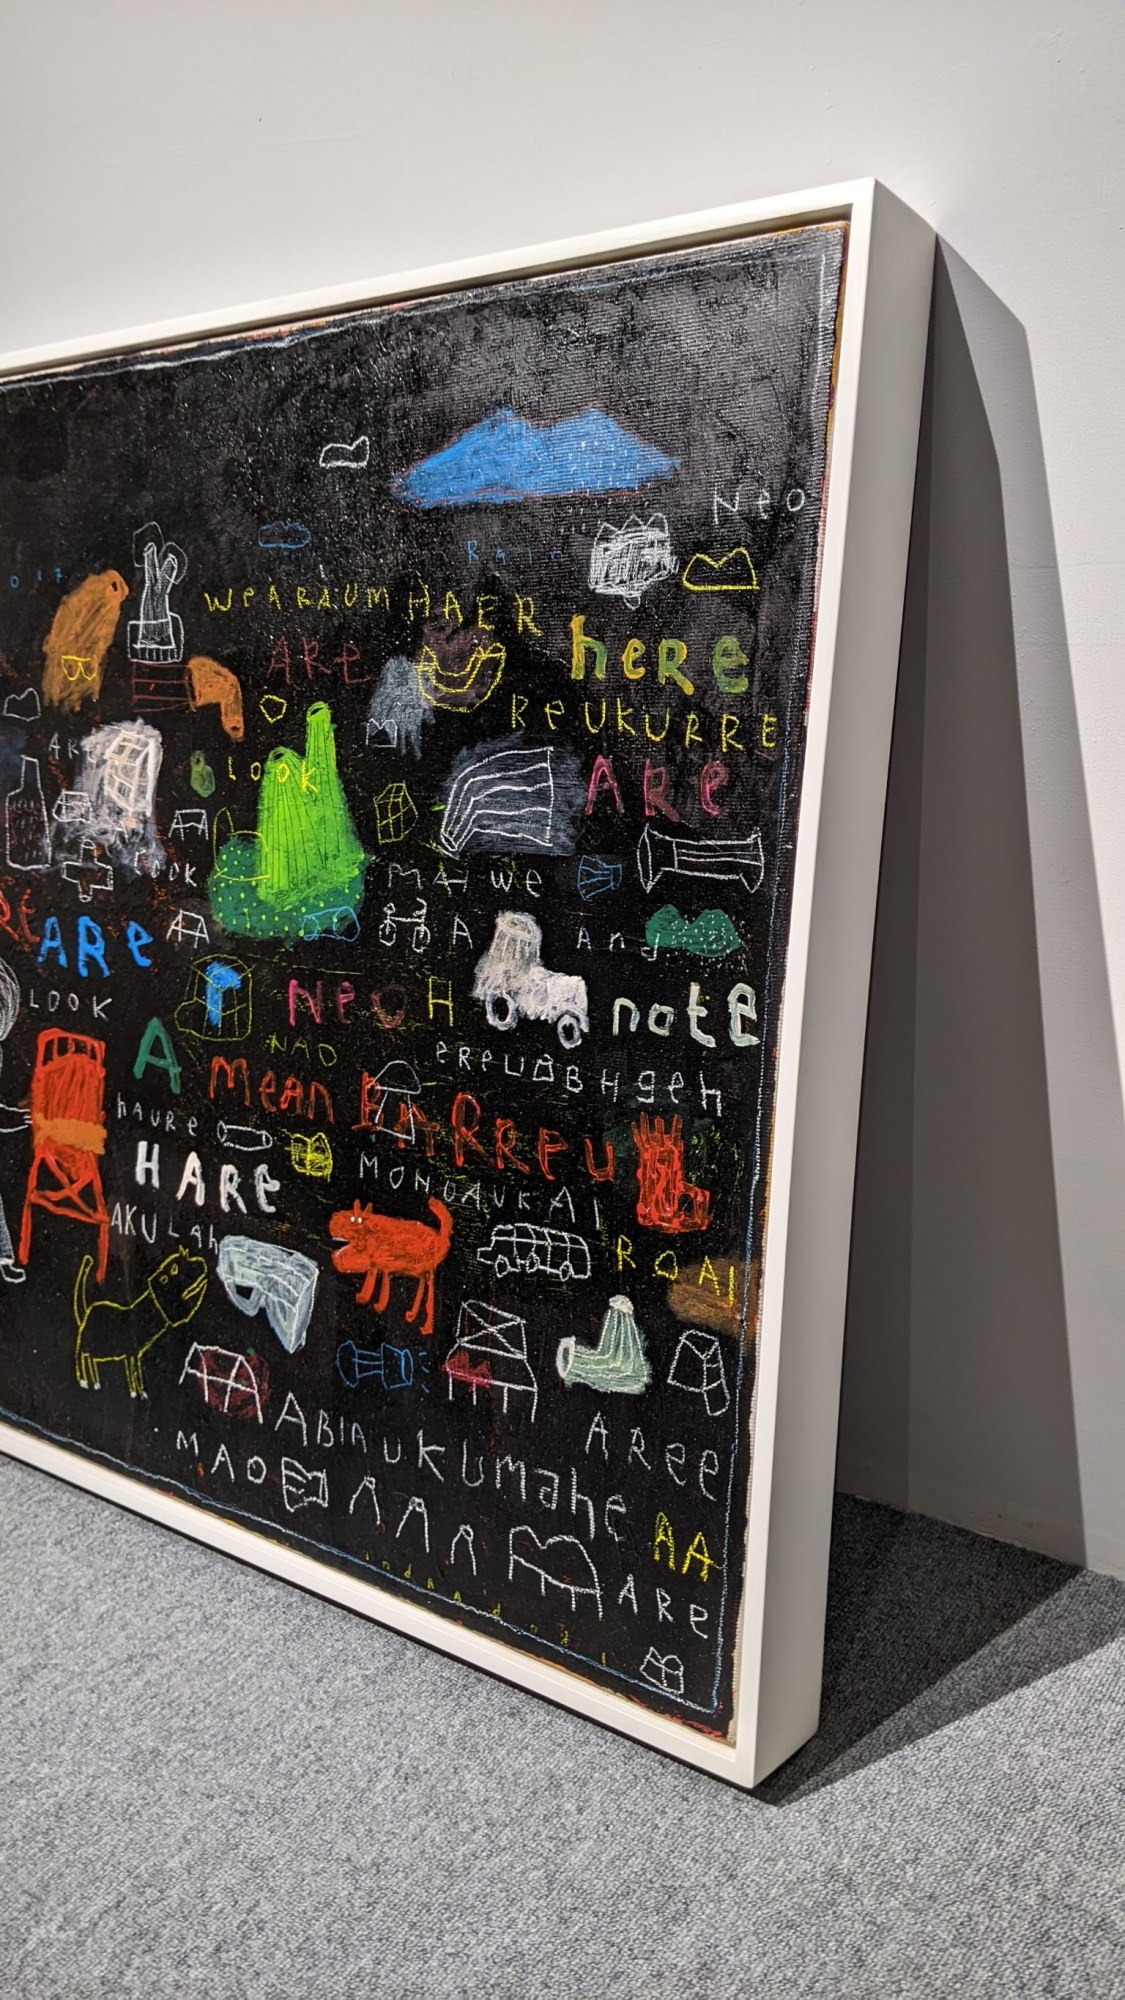 Neo
Rain
WeARAUM HAER
here
ARe
ReUKURRE
LOOK
ARe
MA We
And
ARe
A
LOOK
NeO H
note
NAO
A
eReUBBHgeh
Mean
hAURe
HARe
MONDAUKAI
AKULAh
ROAI
ABIA UKUmahe
ARee
MAO
AA
ARe